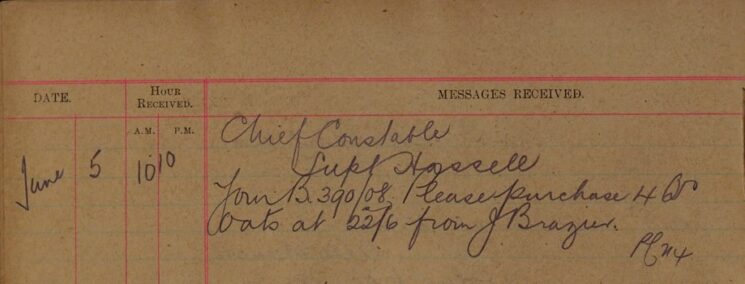 DATE. HOUR RECEIVED. MESSAGES RECEIVED.
A.M. P.M.
June 5 10 10 Chief Constable
Supt Hassell
Your B. 390/08. Please purchase 4 Qrs
Oats at 22/6 from J Brazier.